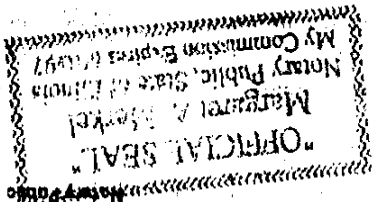 "OFFICIAL SEAL"
Margaret A. Merkel
Notary Public, State of Illinois
My Commission Expires
Notary Public